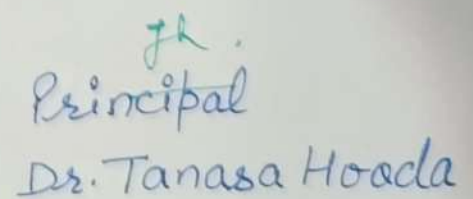 Principal
Dr. Tanasa Hooda